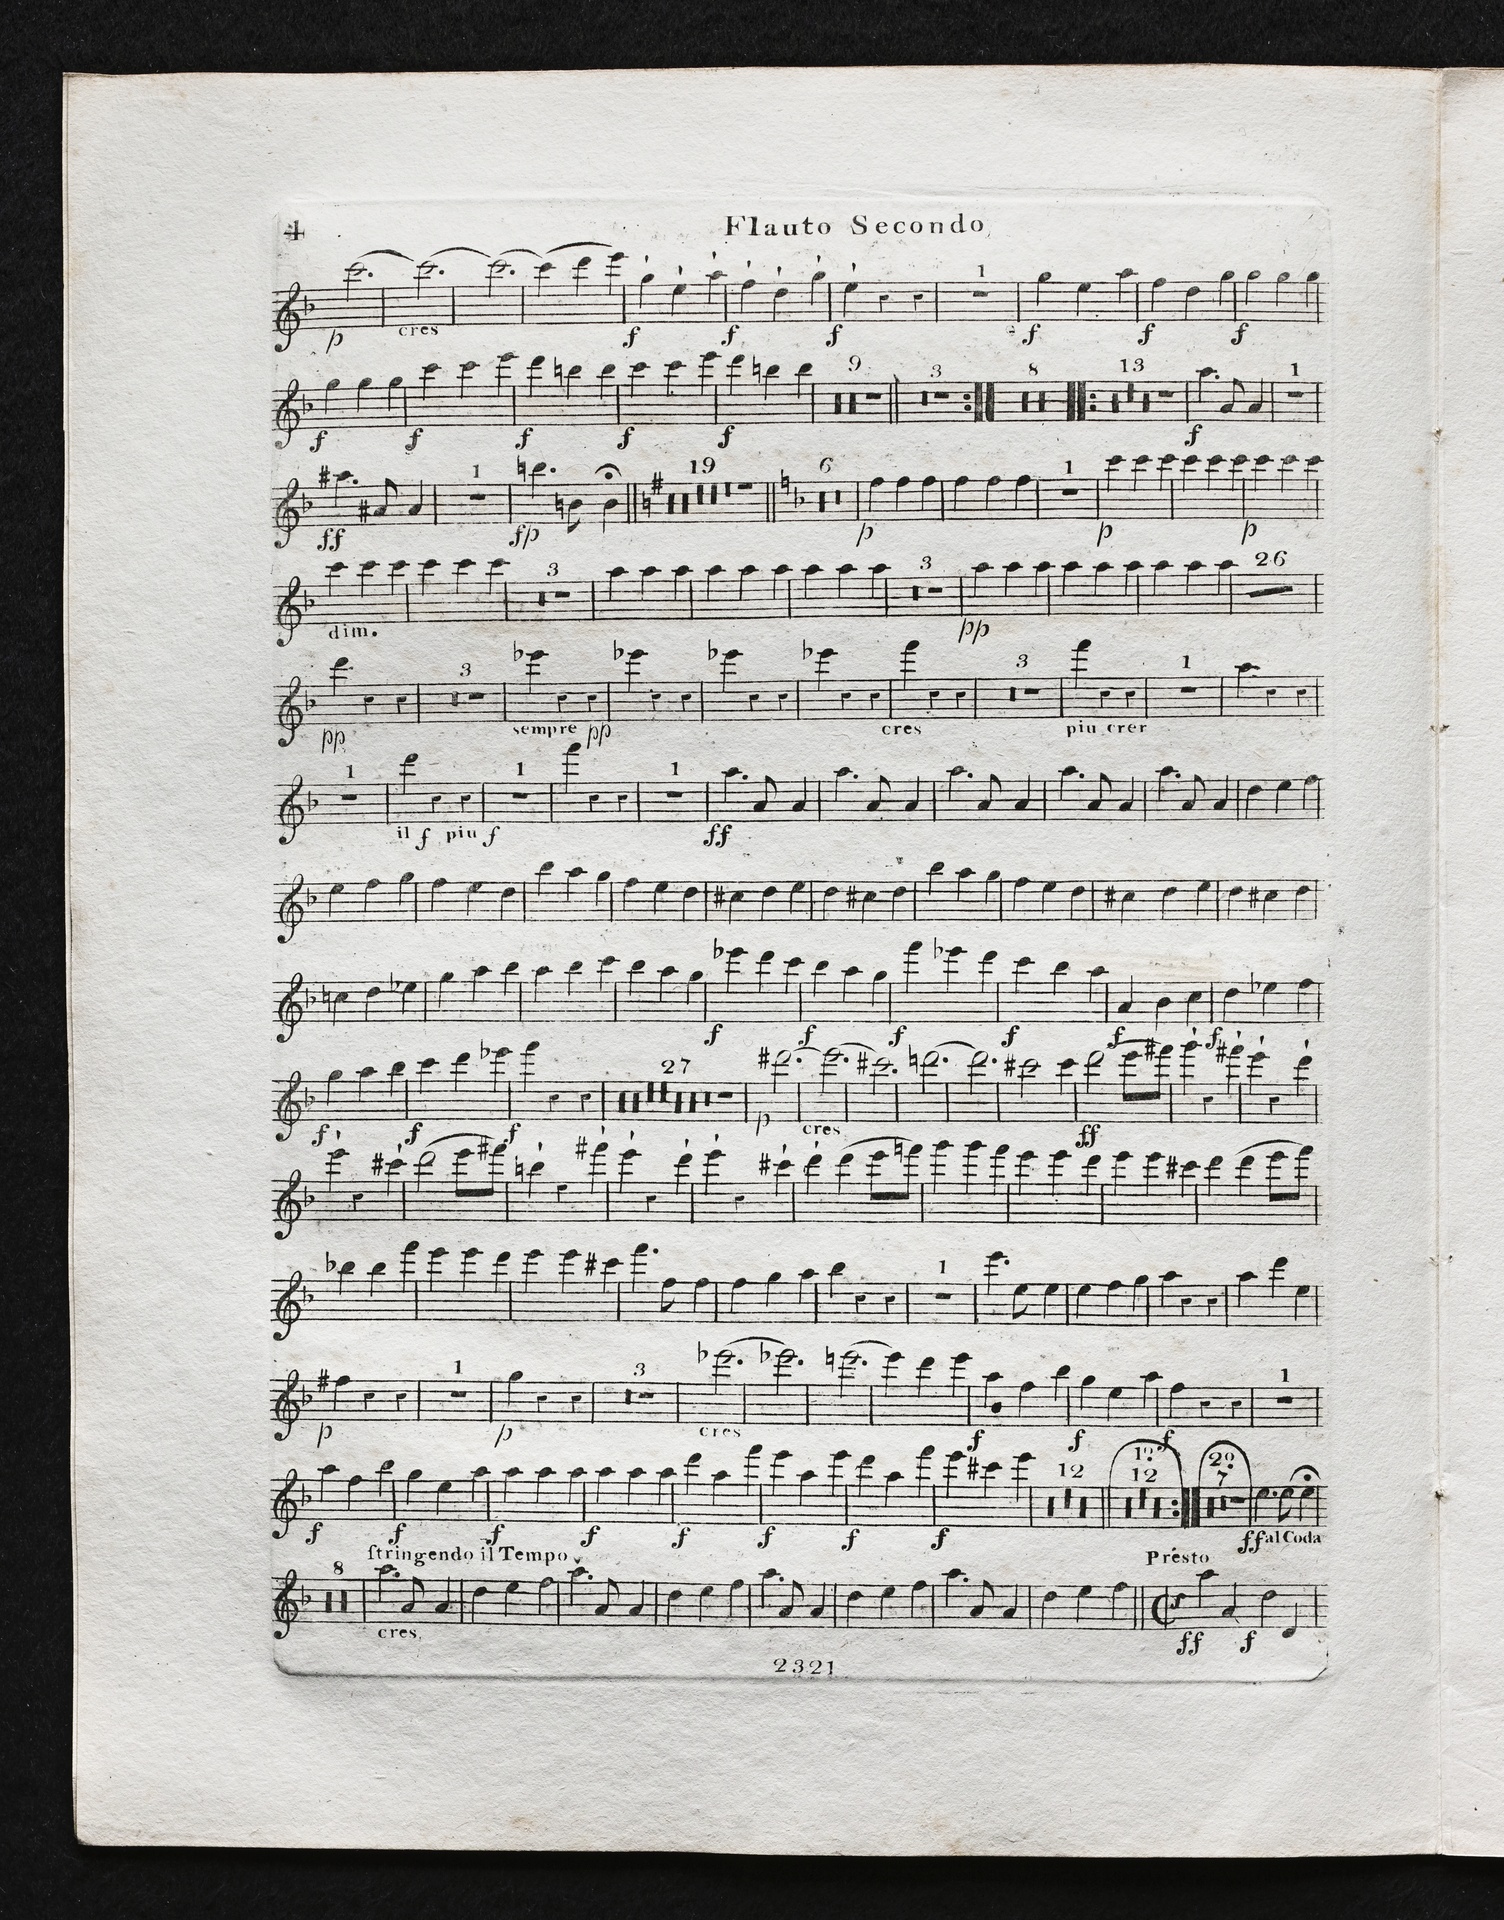 4 Flauto Secondo
1
p cres f f f f f f
9 3 8 13 1
f f f f f f
1 19 6 1
ff fp p p p
3 3 26
dim. pp
3 3 1
pp sempre pp cres piu crer
1 1 1
il f piu f ff
f f f f f f
27
f f f p cres ff
1
1 3 1
p p cres f f f
12 1º. 12 2º. 7
f f f f f f f f ff al Coda
stringendo il Tempo Presto
8
cres. ff f
2321